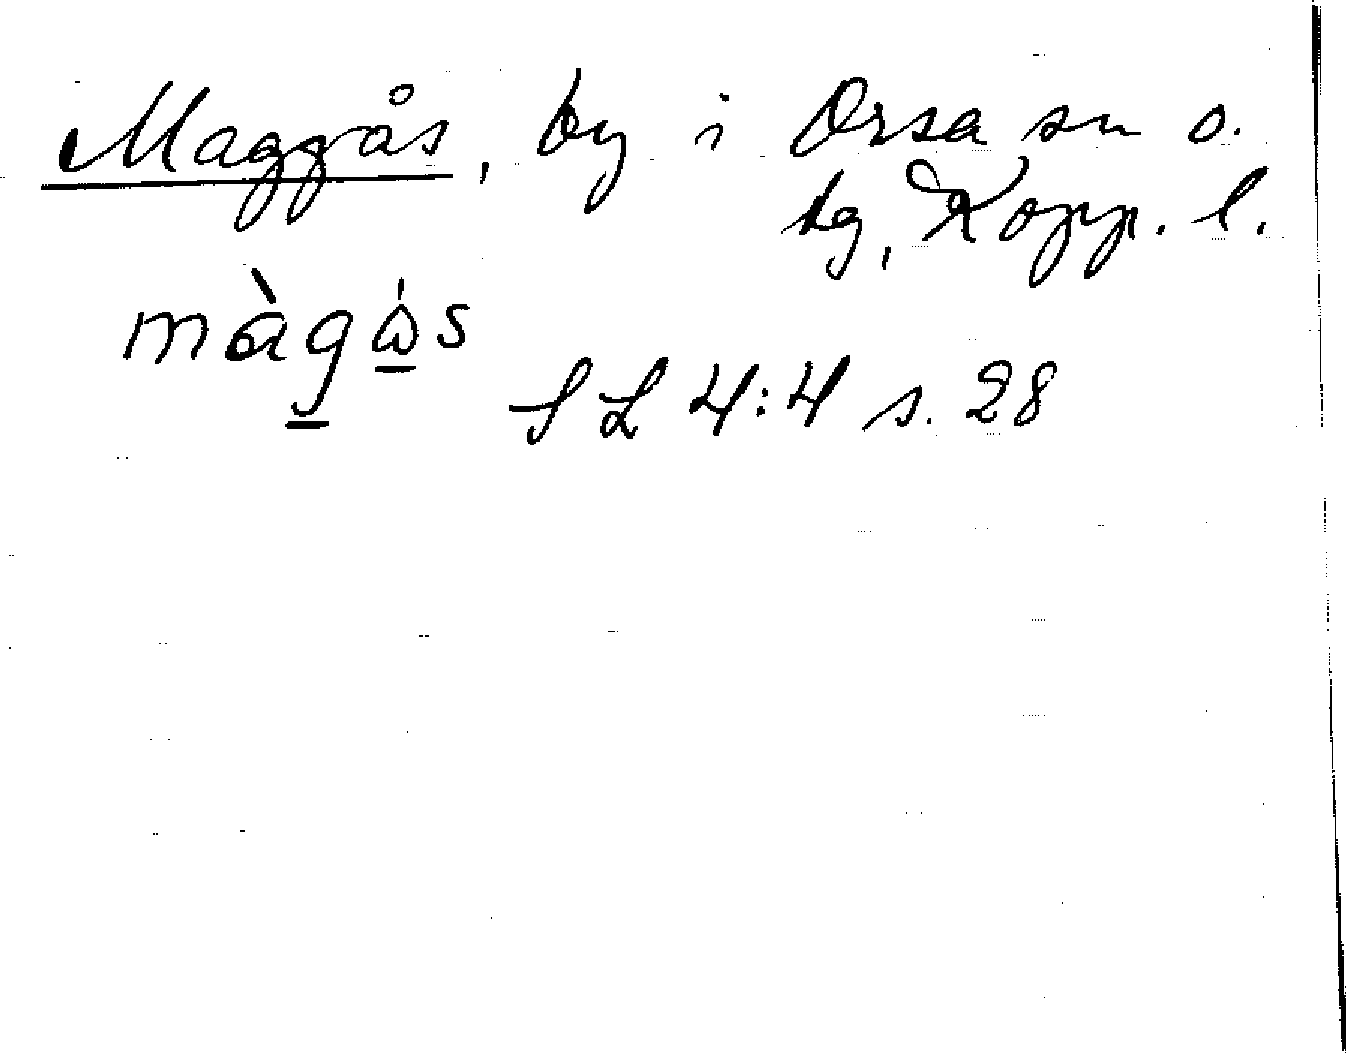 Maggås, by i Orsa sn o.
tg, Kopp. l.
màg̲å̲s
SL 4:4 s. 28